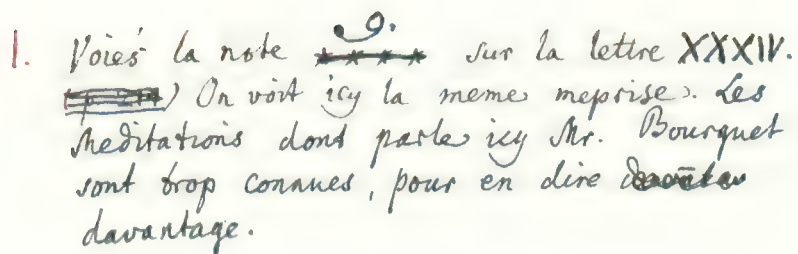 9.
1. Voiés la note **** sur la lettre XXXIV.
) On voit icy la meme meprise. Les
Meditations dont parle icy Mr. Bourguet
sont trop connues, pour en dire
davantage.